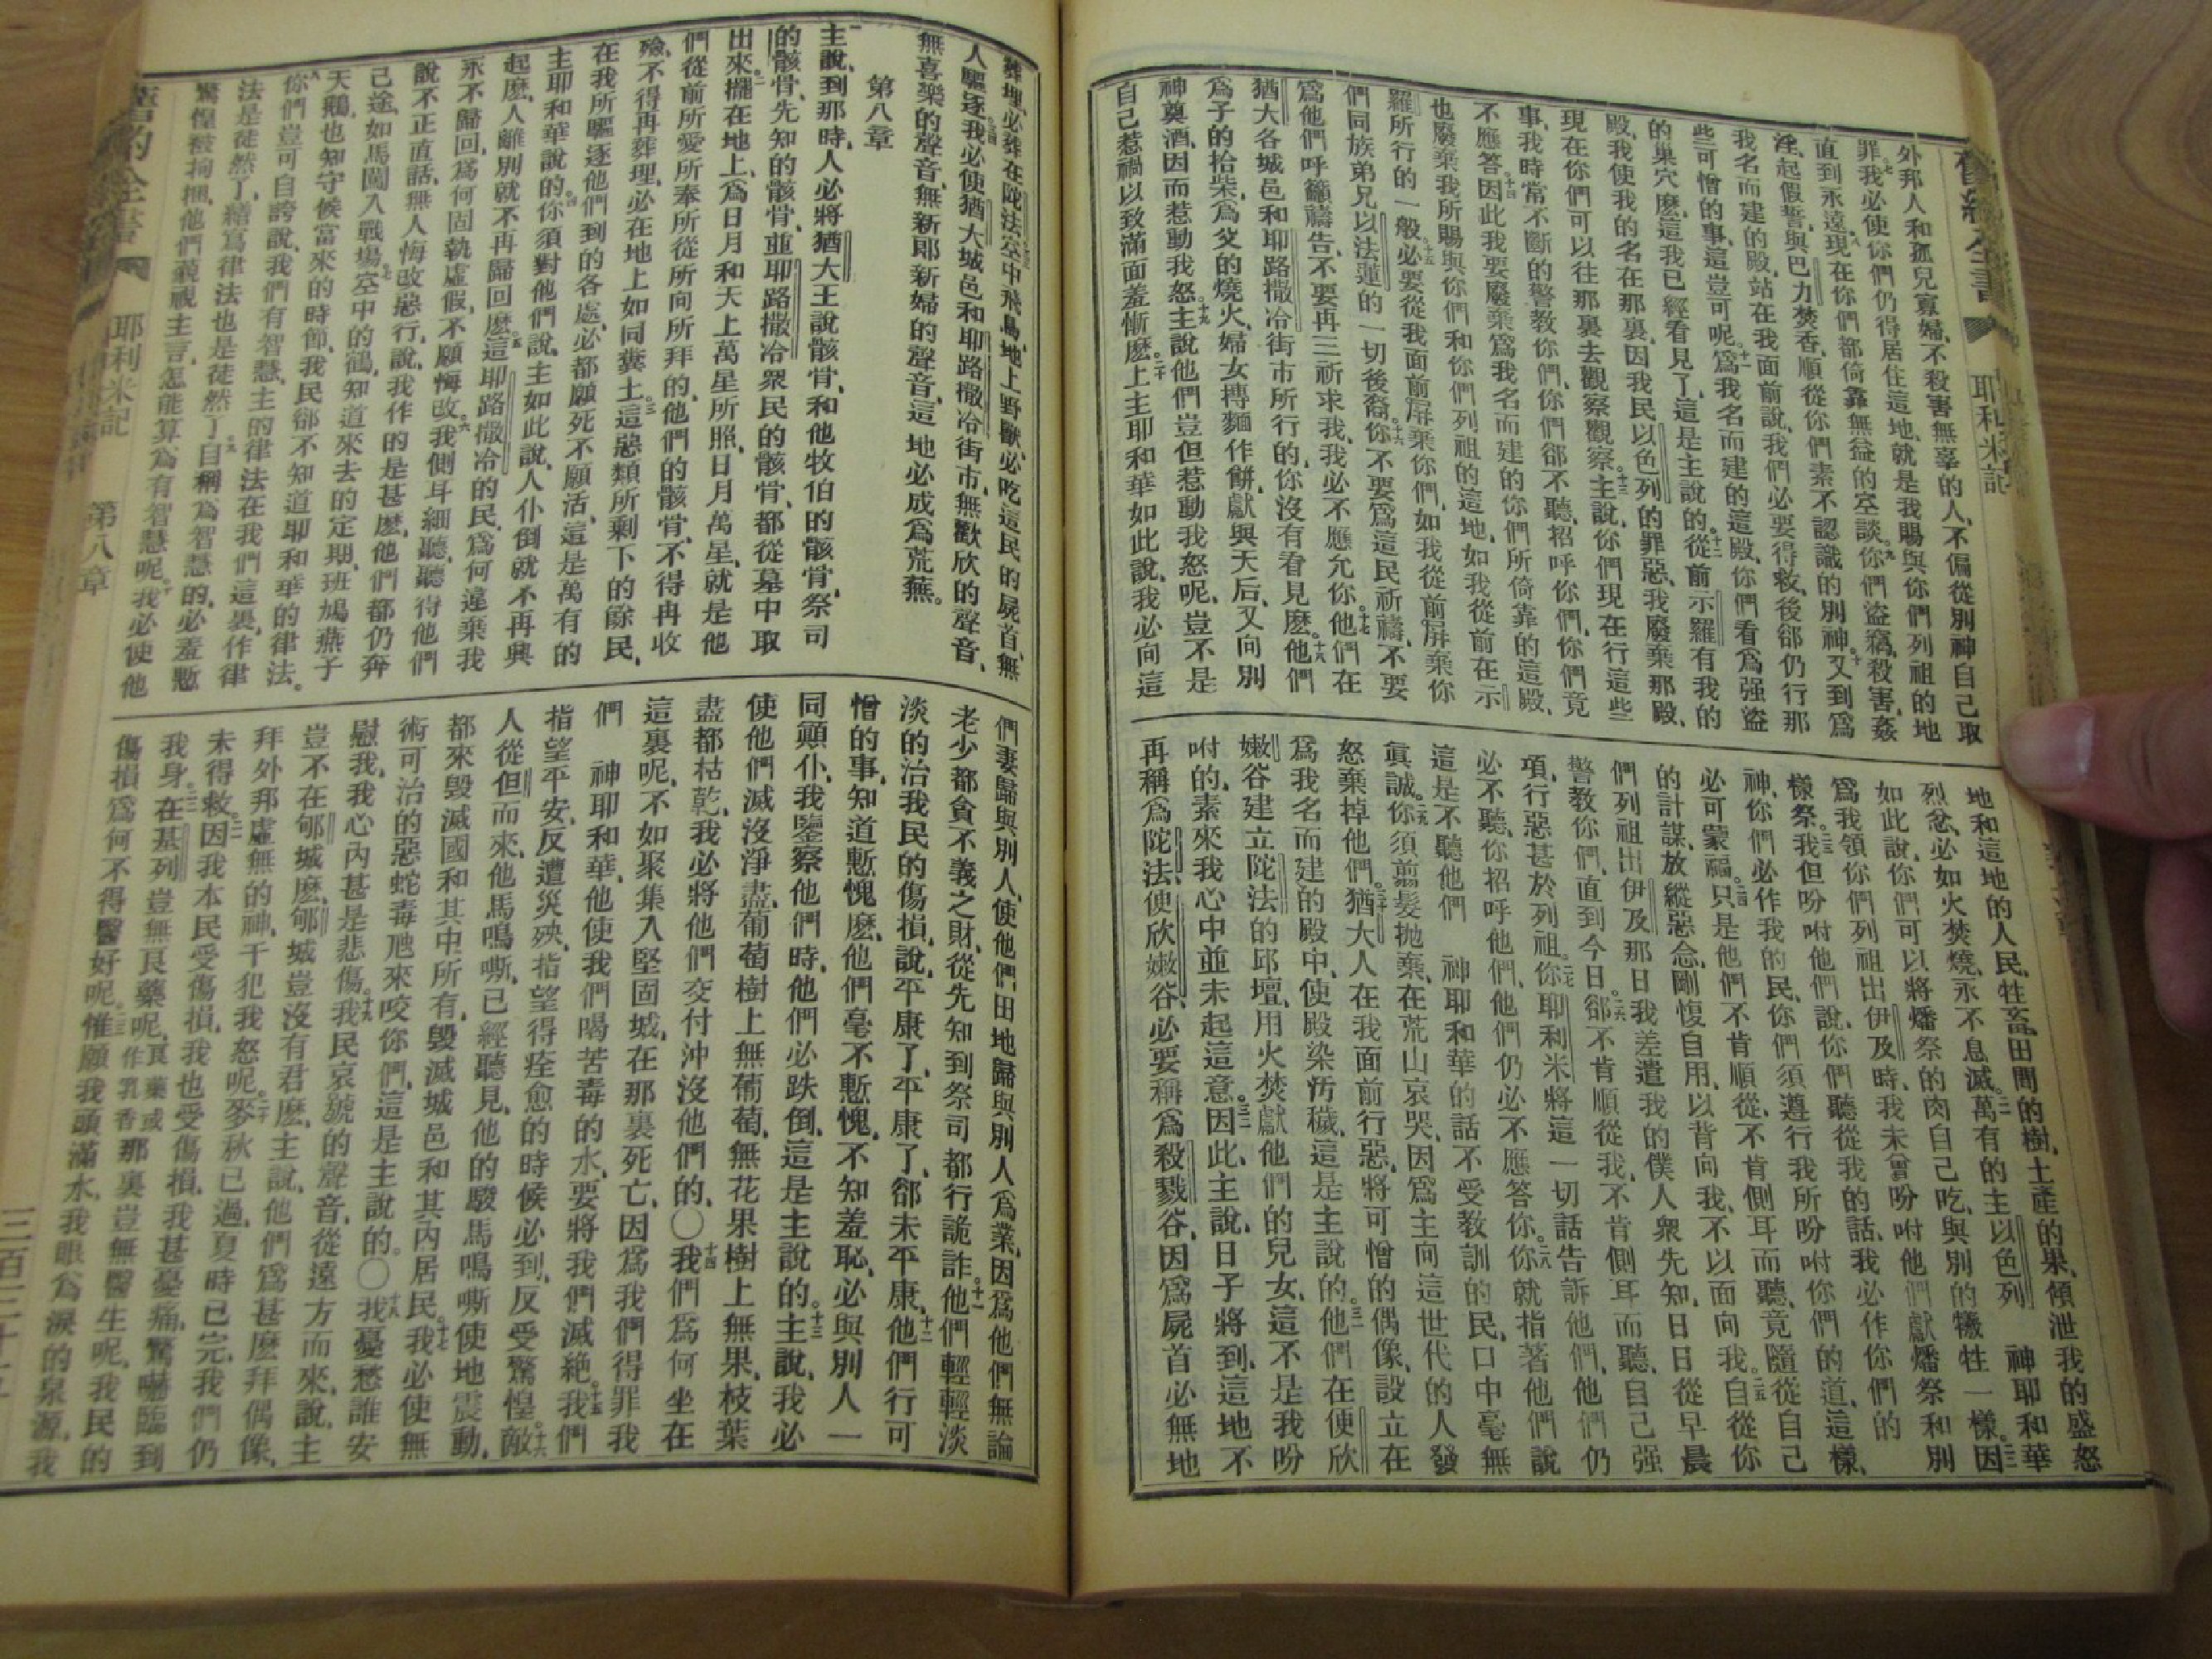 舊約全書 耶利米記
外邦人和孤兒寡婦、不殺害無辜的人、不偏從別神自己取
罪、七我必使你們仍得居住這地、就是我賜與你們列祖的地
直到永遠。八現在你們都倚靠無益的空談。九你們盜竊、殺害、姦
淫、起假誓、與巴力焚香、順從你們素不認識的別神。十又到爲
我名而建的殿、站在我面前說、我們必要得救、後郤仍行那
些可憎的事、這豈可呢。十一爲我名而建的這殿、你們看爲强盜
的巢穴麽、這我已經看見了、這是主說的。十二從前示羅有我的
殿、我使我的名在那裏、因我民以色列的罪惡、我廢棄那殿、
現在你們可以往那裏去觀察觀察。十三主說、你們現在行這些
事、我時常不斷的警教你們、你們郤不聽、招呼你們、你們竟
不應答。十四因此我要廢棄爲我名而建的你們所倚靠的這殿、
也廢棄我所賜與你們和你們列祖的這地、如我從前在示
羅所行的一般。十五必要從我面前屏棄你們、如我從前屏棄你
們同族弟兄以法蓮的一切後裔。十六你不要爲這民祈禱、不要
爲他們呼籲禱告、不要再三祈求我、我必不應允你。十七他們在
猶大各城邑和耶路撒冷街市所行的、你沒有看見麽。十八他們
爲子的拾柴、爲父的燒火、婦女摶麵作餅、獻與天后、又向別
神奠酒、因而惹動我怒。十九主說他們豈但惹動我怒呢、豈不是
自己惹禍以致滿面羞慚麽。二十上主耶和華如此說、我必向這
地和這地的人民、牲畜、田間的樹、土產的果、傾泄我的盛怒
烈忿、必如火焚燒、永不息滅。二一萬有的主以色列 神耶和華
如此說、你們可以將燔祭的肉自己吃、與別的犧牲一樣。二二因
爲我領你們列祖出伊及時、我未曾吩咐他們獻燔祭和別
樣祭。二三我但吩咐他們說、你們聽從我的話、我必作你們的
神、你們必作我的民、你們須遵行我所吩咐你們的道、這樣、
必可蒙福。二四只是他們不肯順從、不肯側耳而聽、竟隨從自己
的計謀、放縱惡念、剛愎自用、以背向我、不以面向我。二五自從你
們列祖出伊及那日、我差遣我的僕人衆先知、日日從早晨
警教你們、直到今日。二六郤不肯順從我、不肯側耳而聽、自己强
項、行惡甚於列祖。二七你耶利米將這一切話告訴他們、他們仍
必不聽、你招呼他們、他們仍必不應答你。二八你就指著他們說
這是不聽他們 神耶和華的話不受教訓的民、口中毫無
眞誠。二九你須剪髮拋棄、在荒山哀哭、因爲主向這世代的人發
怒棄掉他們。三十猶大人在我面前行惡、將可憎的偶像、設立在
爲我名而建的殿中、使殿染汚穢、這是主說的。三一他們在便欣
嫩谷建立陀法的邱壇、用火焚獻他們的兒女、這不是我吩
咐的、素來我心中並未起這意。三二因此、主說、日子將到、這地不
再稱爲陀法、便欣嫩谷、必要稱爲殺戮谷、因爲屍首必無地
葬埋、必葬在陀法。三三空中飛鳥、地上野獸、必吃這民的屍首、無
人驅逐。三四我必使猶大城邑和耶路撒冷街市、無歡欣的聲音、
無喜樂的聲音、無新郎新婦的聲音、這地必成爲荒蕪。
第八章
一主說、到那時、人必將猶大王說骸骨、和他牧伯的骸骨、祭司
的骸骨、先知的骸骨、並耶路撒冷衆民的骸骨、都從墓中取
出來。二擺在地上、爲日月和天上萬星所照、日月萬星、就是他
們從前所愛所奉所從所向所拜的、他們的骸骨、不得再收
殮、不得再葬理、必在地上如同糞土。三這惡類所剩下的餘民、
在我所驅逐他們到的各處、必都願死不願活、這是萬有的
主耶和華說的。四你須對他們說、主如此說、人仆倒就不再興
起麽、人離別就不再歸回麽。五這耶路撒冷的民、爲何違棄我
永不歸回、爲何固執虛假、不願悔改。六我側耳細聽、聽得他們
說不正直話、無人悔改惡行、說、我作的是甚麽、他們都仍奔
己途、如馬闖入戰場。七空中的鶴、知道來去的定期、班鳩燕子
天鵝、也知守候當來的時節、我民郤不知道耶和華的律法。
八你們豈可自誇說、我們有智慧、主的律法在我們這裏、作律
法是徒然了、繕寫律法也是徒然了。九自稱爲智慧的、必羞慙
驚惶被拘捆、他們藐視主言、怎能算爲有智慧呢。十我必使他
們妻歸與別人、使他們田地歸與別人爲業、因爲他們無論
老少都貪不義之財、從先知到祭司都行詭詐。十一他們輕輕淡
淡的治我民的傷損、說、平康了、平康了、郤未平康。十二他們行可
憎的事、知道慙愧麽、他們毫不慙愧、不知羞恥、必與別人一
同顚仆、我鑒察他們時、他們必跌倒、這是主說的。十三主說、我必
使他們滅沒淨盡、葡萄樹上無葡萄、無花果樹上無果、枝葉
盡都枯乾、我必將他們交付沖沒他們的、〇十四我們爲何坐在
這裏呢、不如聚集入堅固城、在那裏死亡、因爲我們得罪我
們 神耶和華、他使我們喝苦毒的水、要將我們滅絕。十五我們
指望平安、反遭災殃、指望得痊愈的時候必到、反受驚惶。十六敵
人從但而來、他馬鳴嘶、已經聽見、他的駿馬鳴嘶使地震動、
都來毀滅國和其中所有、毀滅城邑和其內居民。十七我必使無
術可治的惡蛇毒虺來咬你們、這是主說的。〇十八我憂愁誰安
慰我、我心內甚是悲傷。十九我民哀號的聲音、從遠方而來、說、主
豈不在郇城麽、郇城豈沒有君麽、主說、他們爲甚麽拜偶像、
拜外邦虛無的神、干犯我怒呢。二十麥秋已過、夏時已完、我們仍
未得救。二一因我本民受傷損、我也受傷損、我甚憂痛、驚嚇臨到
我身。二二在基列豈無良藥呢、良藥或作乳香那裏豈無醫生呢、我民的
傷損爲何不得醫好呢。二三惟願我頭滿水、我眼爲淚的泉源、我
舊約全書 耶利米記 第八章